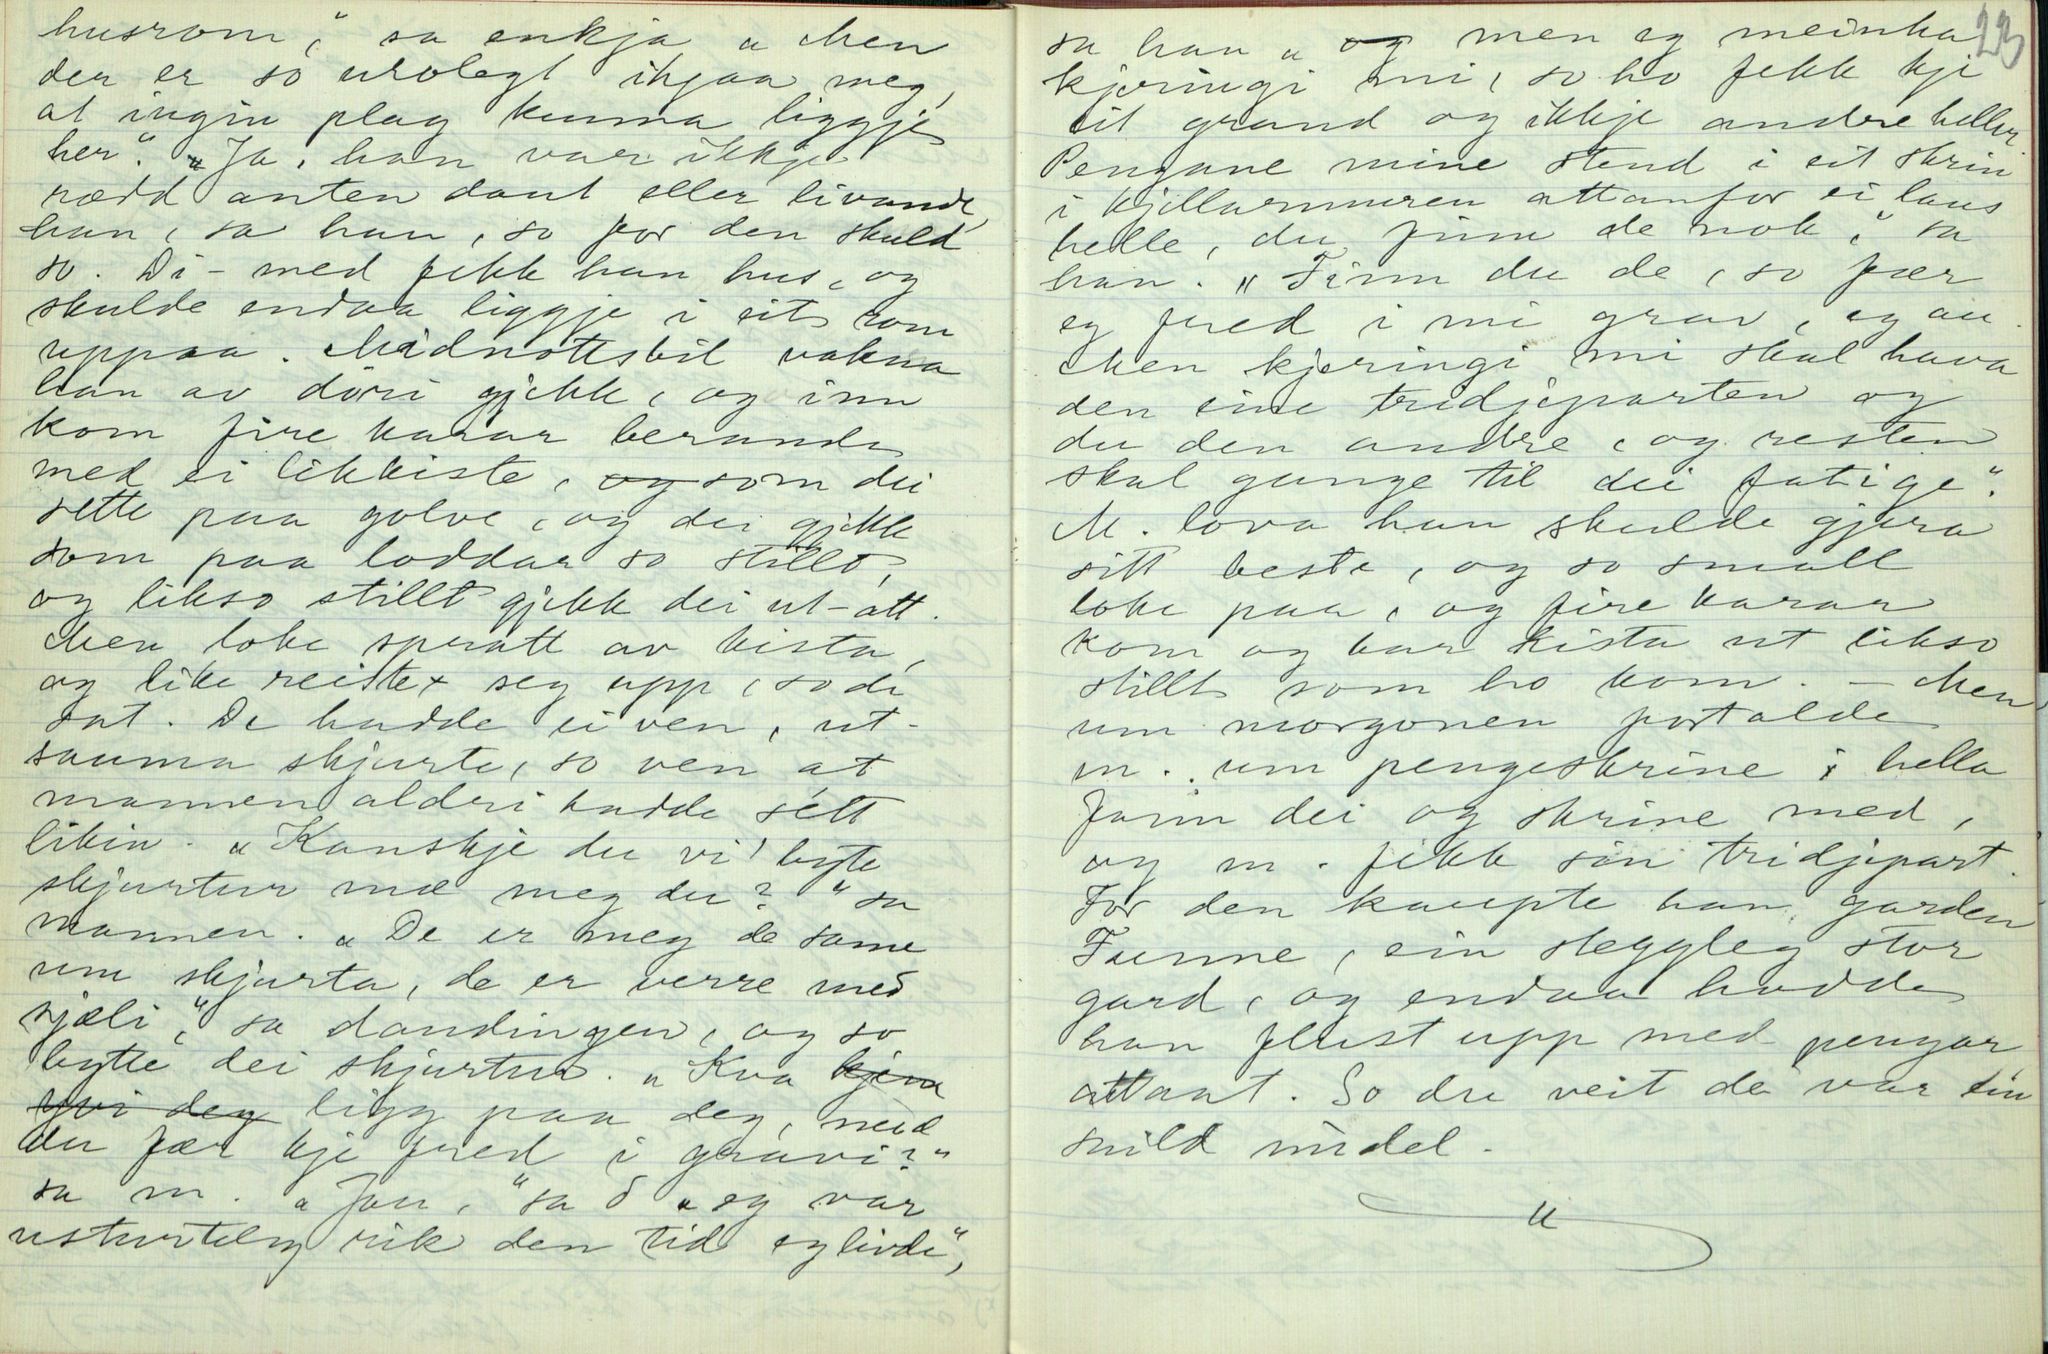 husrom," sa enkja „Men
der er so urolegt ihjaa meg,
at ingin plag kunna liggje
her." „Ja, han var ikkje
rædd anten daut eller livande,
han, sa han, so for den skuld
so. Di-med fekk han hus, og
skulde endaa liggje i eit rom
uppaa. Midnottsbil vakna
han av döri gjekk, og inn
kom fire karar berande
med ei likkiste, og som dei
sette paa golve, og dei gjekk
som paa loddar so stillt,
og likso stillt gjekk dei ut-att.
Men loke spratt av kista,
og like reiste seg upp, so de
sat. De hadde ei ven, ut-
sauma skjurte, so ven at
mannen aldri hadde sétt
likin. „Kanskje du vi' byte
skjurtur mæ meg du?" sa
mannen. „De er meg de same
um skjurta, de er verre med
sjæli," sa daudingen, og so
bytte dei skjurtur. „Kva kjem
yvi deg ligg paa deg, med
du fær kje fred i gravi?"
sa m. „Jau," sa d „eg var
ustyrteleg rik den tid eg livde",
23
sa han „og men eg meinka
kjeringi mi, so ho fekk kje
eit grand og ikkje andre heller.
Pengane mine stend i eit skrin
i kjellarmuren attanfor ei laus
helle, du finn de nok," sa
han. „Finn du de, so fær
eg fred i mi grav, eg au.
Men kjeringi mi skal hava
den eine tridjeparten og
du den andre, og resten
skal gange til dei fatige".
M. lova han skulde gjera
sitt beste, og so small
loke paa, og fire karar
kom og bar kista ut likso
stillt som ho kom. - Men
um morgonen fortalde
m. um pengeskrine i hella
fann dei og skrine med,
og m. fekk sin tridjepart.
For den kaupte han garden
Funne, ein steggleg stor
gard, og endaa hadde
han flust upp med pengar
attaat. So du veit de var ein
snild midel.